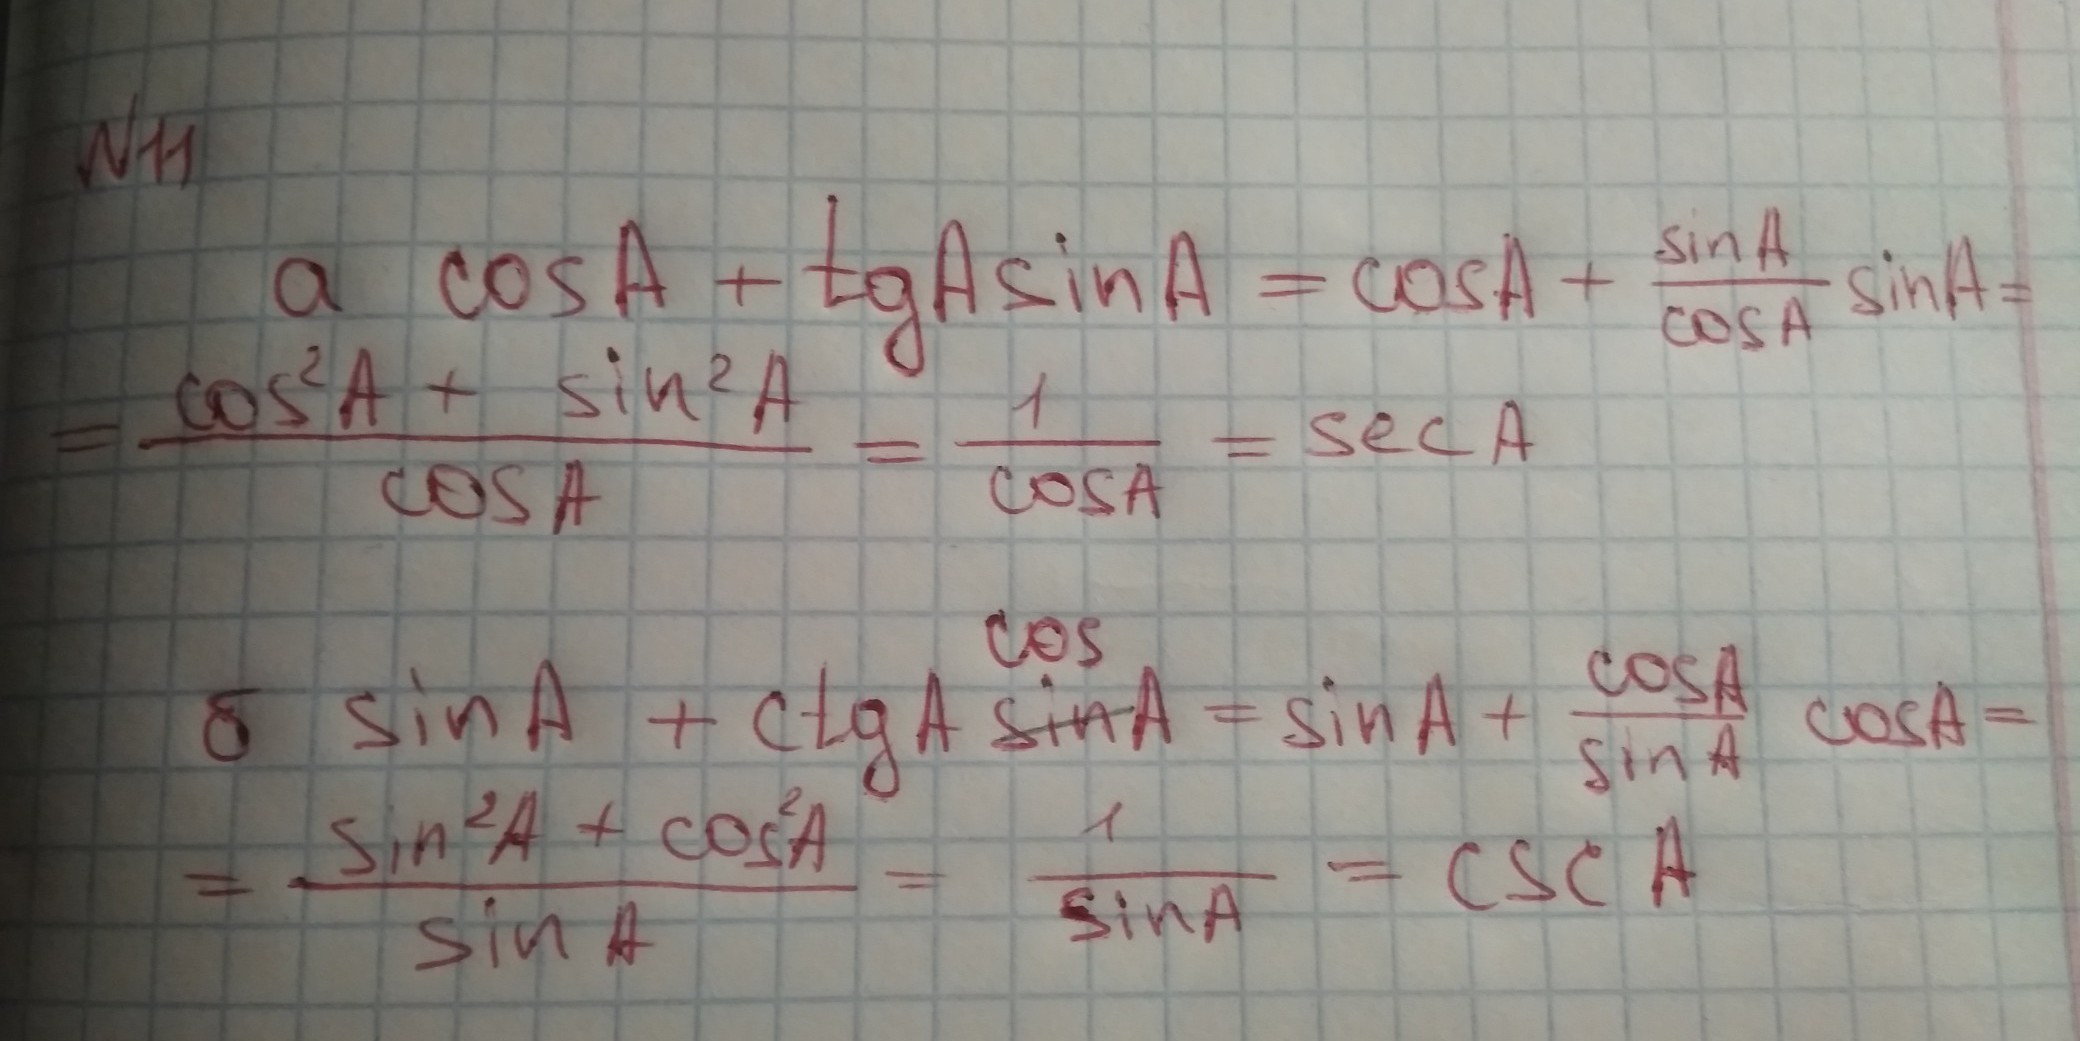 N11
a cosA + tgA sinA = cosA + sinA/cosA sinA =
= cos²A + sin²A/cosA = 1/cosA = secA
cos
б sinA + ctgA sinA = sinA + cosA/sinA cosA =
= sin²A + cos²A/sinA = 1/sinA = cscA